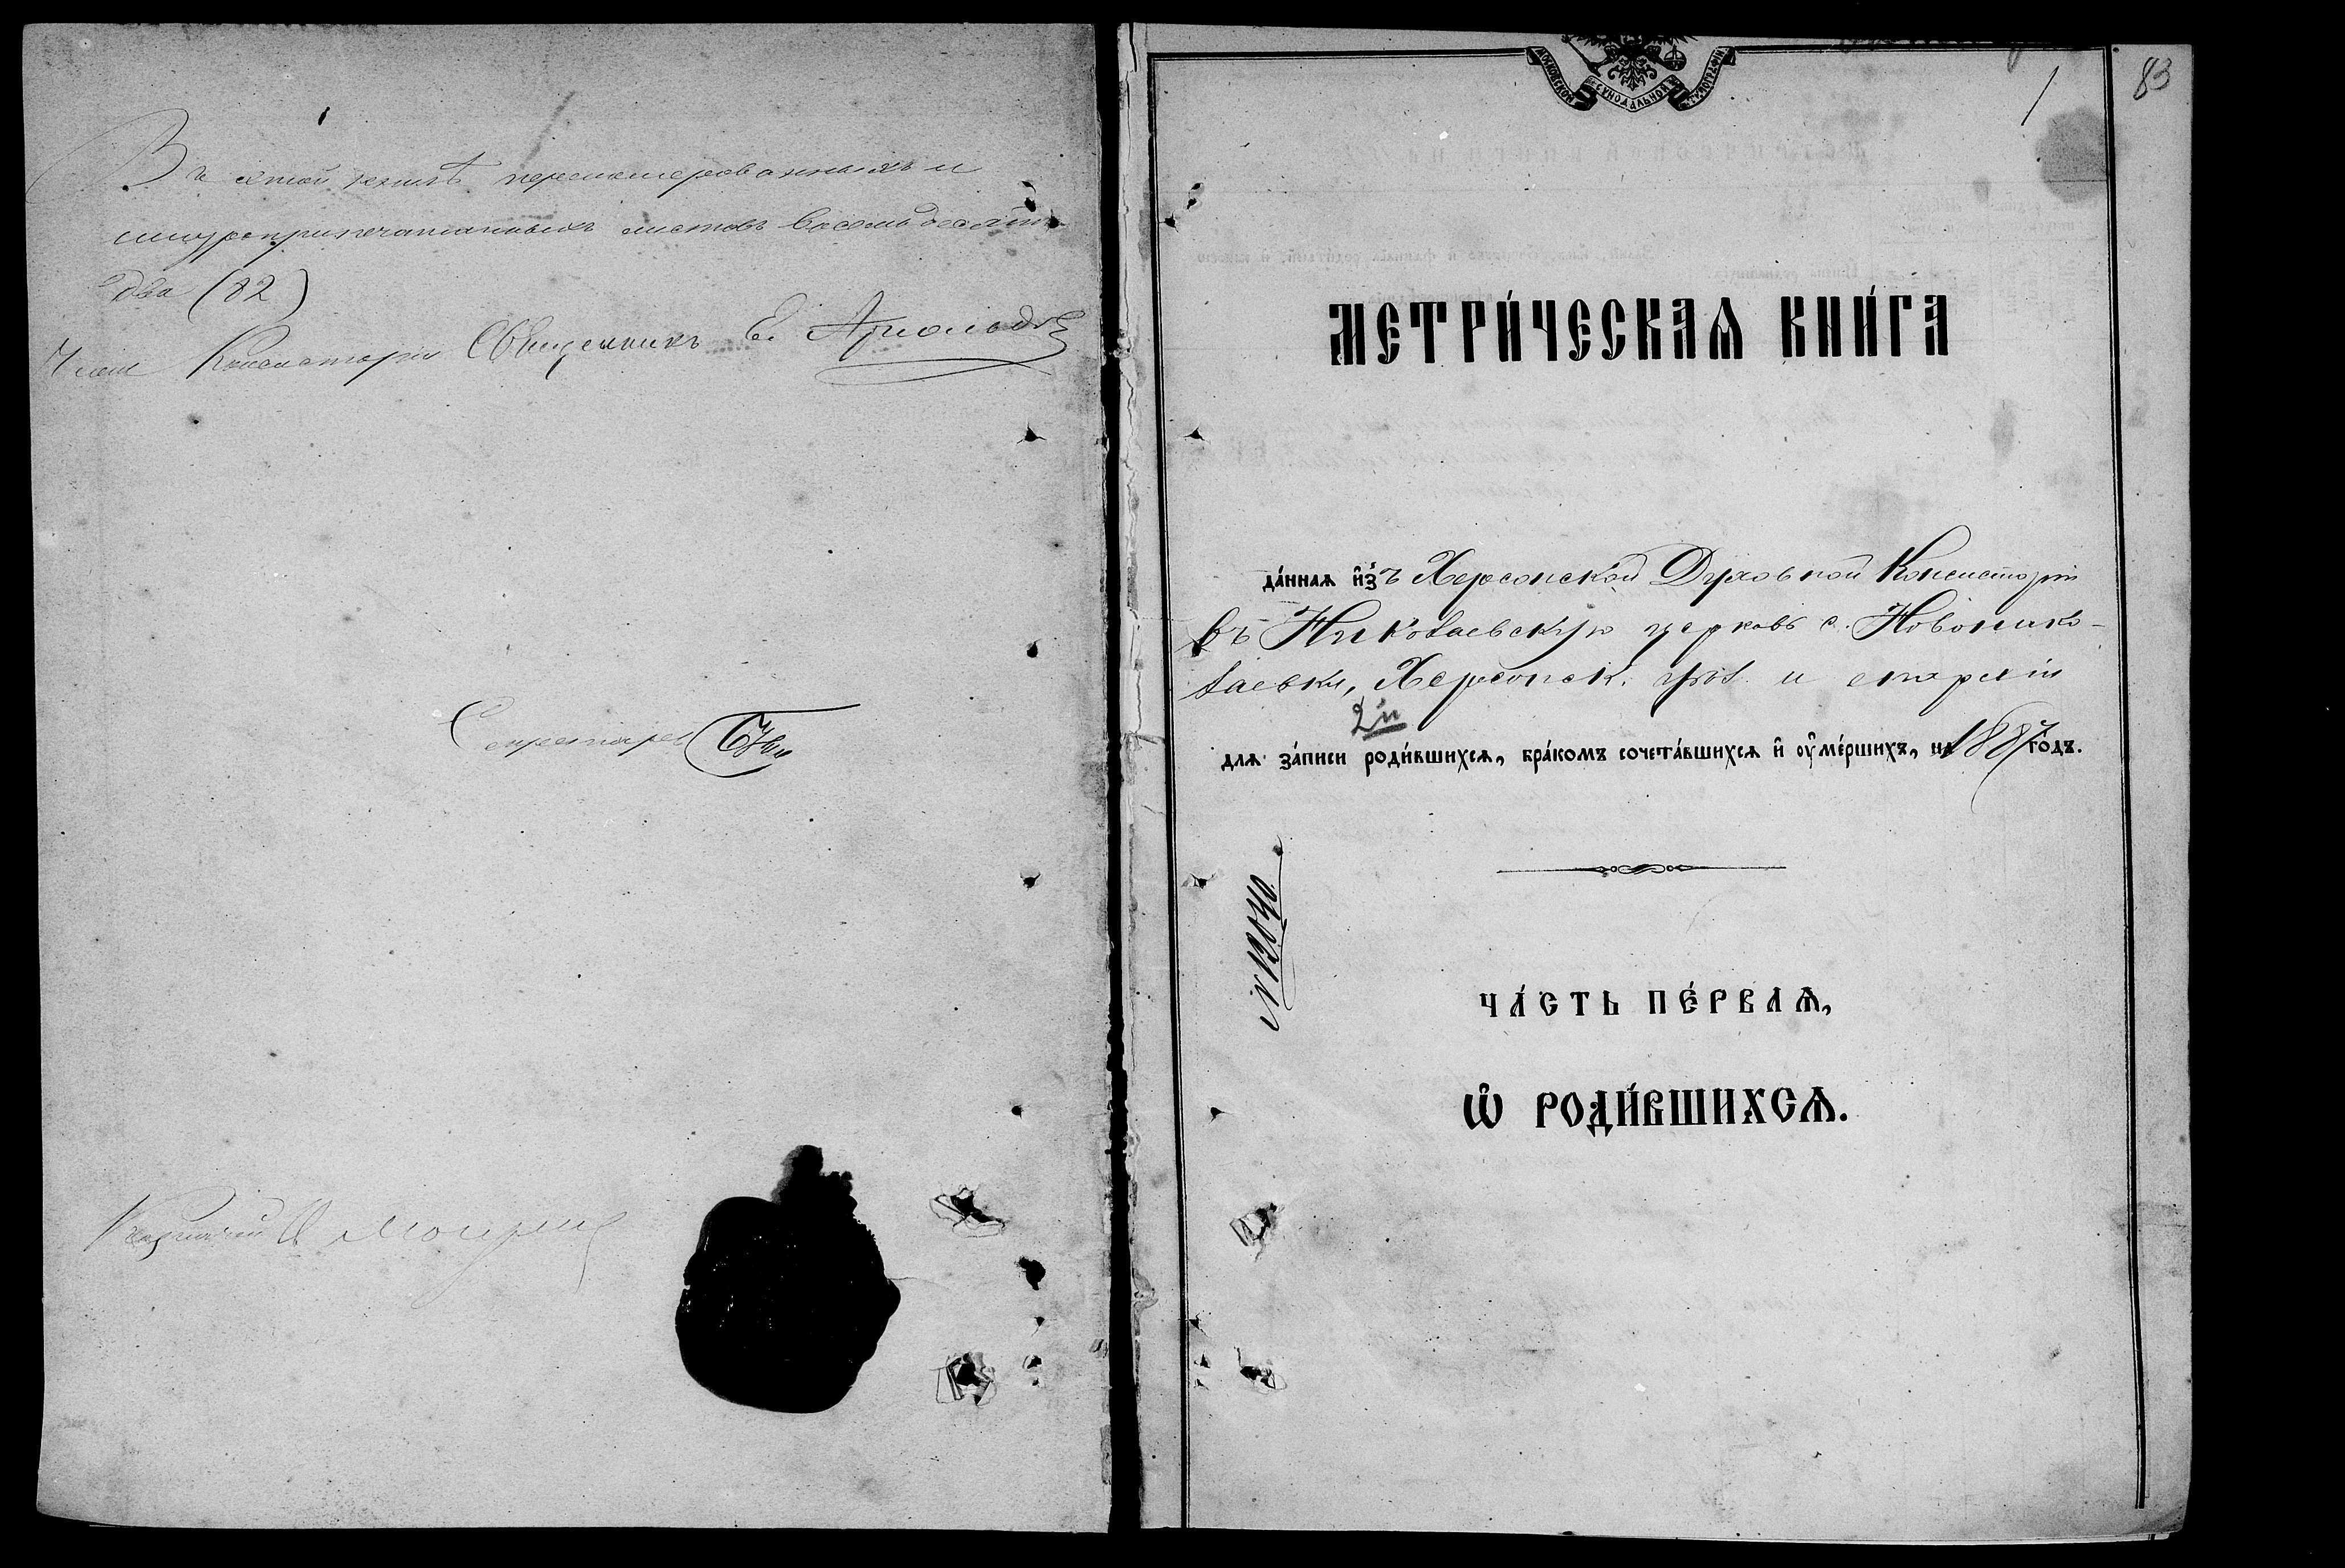 Въ этой книгѣ перенумерованныхъ и
шнуроприпечатанныхъ листовъ восемьдесятъ
два (82)
Членъ Консисторіи Священникъ Е. Арнольдовъ
Секретарь
Казначей
МОСКОВСКОЙ СѴНОДАЛЬНОЙ ТИПОГРАФІИ
1
83
МЕТРИ́ЧЕСКАѦ КНИ́ГА
да́ннаѧ и҆з̾ъ Херсонской Духовной Консисторіи
въ Николаевскую церковь с. Новонико-
лаевки, Херсонск. уѣз. и епархіи
2й
длѧ за́писи роди́вшихсѧ, бра́комъ сочета́вшихсѧ и҆ оу҆ме́ршихъ, на 1887 го́дъ.
№ 12040
ЧА́СТЬ ПЕ́РВАѦ,
Ѡ҆ РОДИ́ВШИХСѦ.